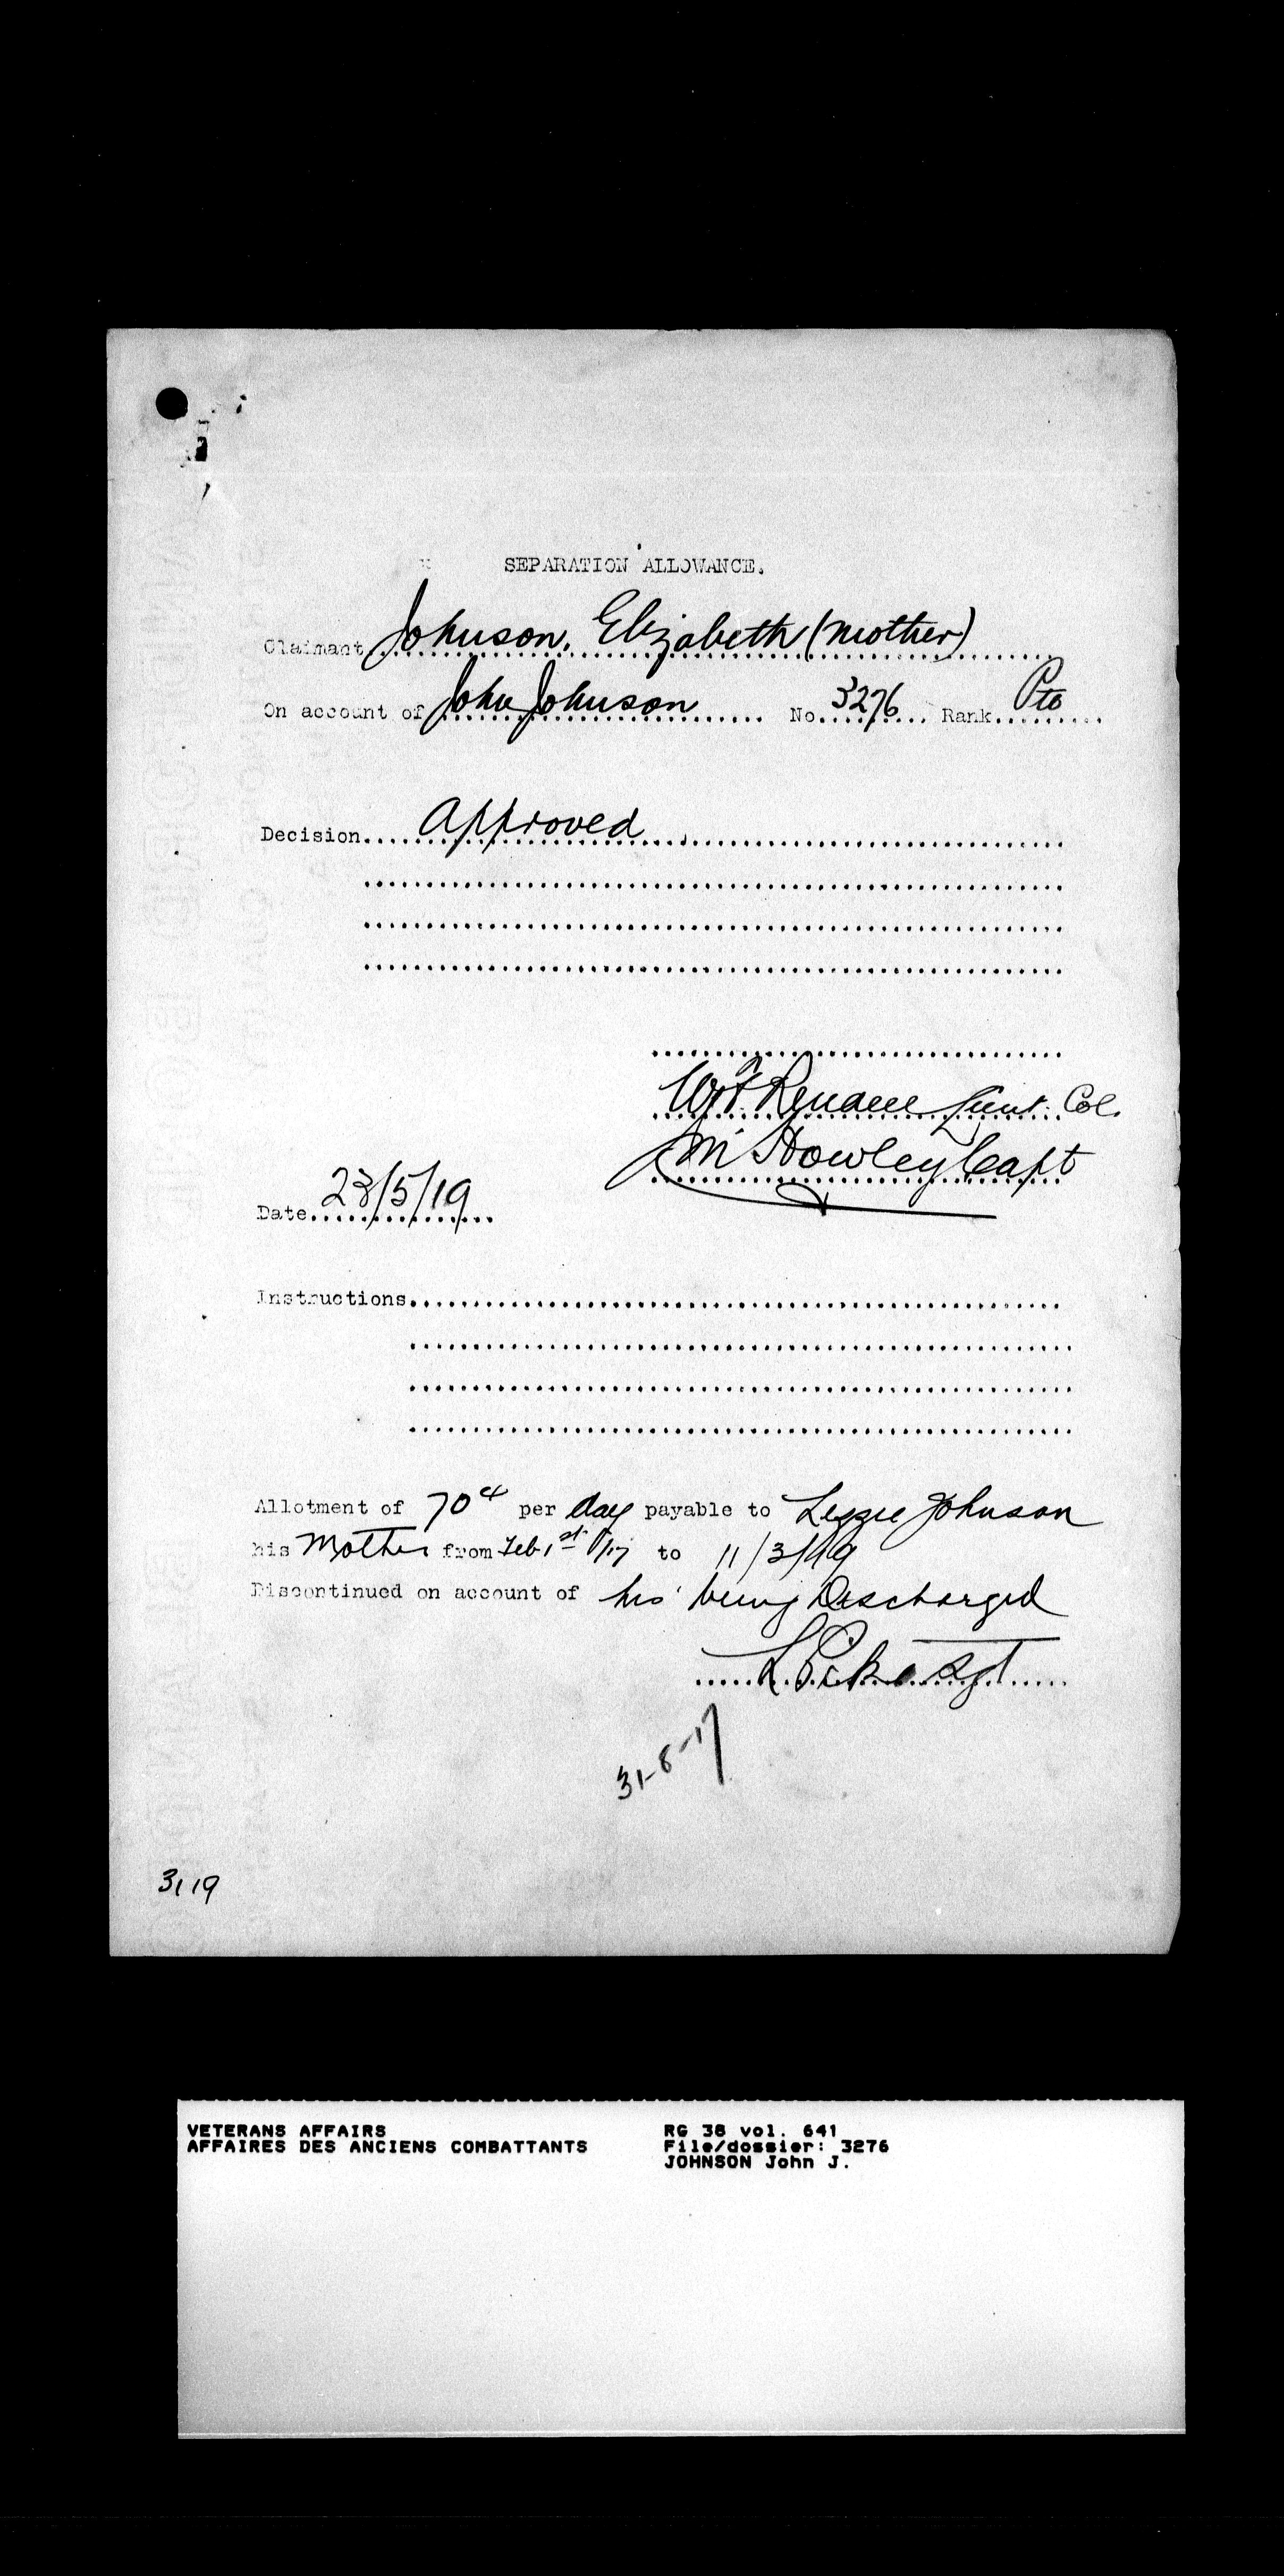 SEPARATION ALLOWANCE.
Claimant Johnson, Elizabeth (mother)
On account of John Johnson No. 3276 Rank Pte
Decision Approved
W.F. Rendell Lieut. Col.
M Howley Capt
Date 23/5/19
Instructions
Allotment of 70¢ per day payable to Lizzie Johnson
his Mother from Feb 1st /17 to 11/3/19
Discontinued on account of his being Discharged
L Pike Sgt
31-8-17
3119
VETERANS AFFAIRS RG 38 vol. 641
AFFAIRES DES ANCIENS COMBATTANTS File/dossier: 3276
JOHNSON John J.